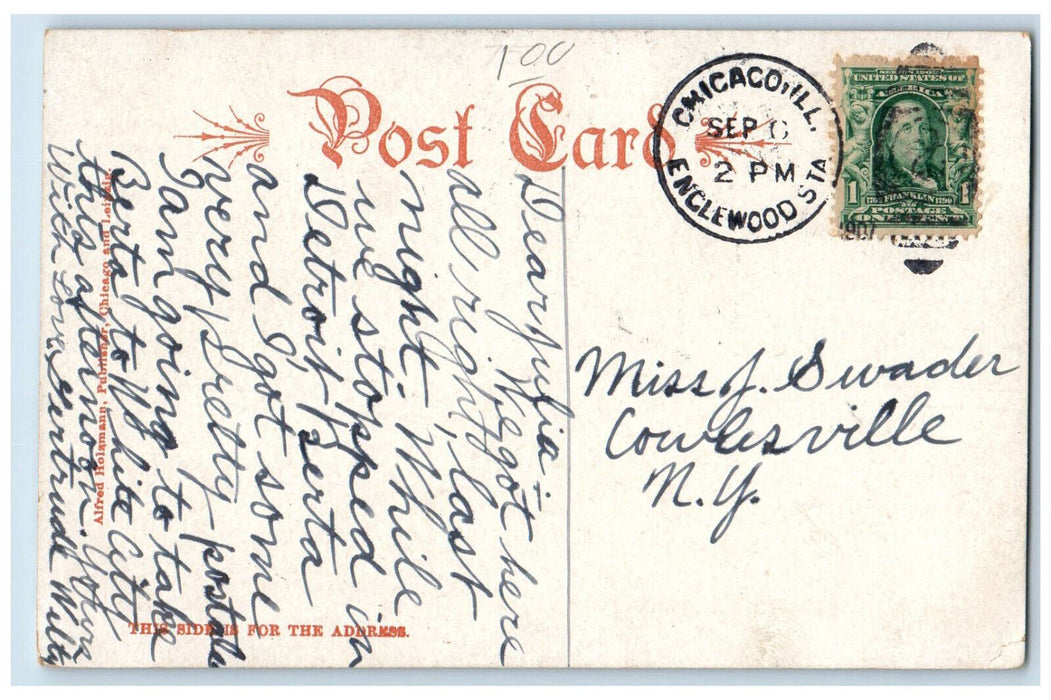 7.00
Post Card
CHICAGO, ILL.
SEP 6
2 PM
ENGLEWOOD STA.
1907
SERIES 1902
UNITED STATES OF
AMERICA
1
1706 FRANKLIN 1790
1
POSTAGE
ONE CENT
Dear Julia-
We got here
all right, last
night. While
we stopped in
Detroit, Berta
and I got some
very pretty postals
I am going to take
Berta to White City
this afternoon.
With Love, Gertrude
Miss J. Swader
Cowlesville
N.Y.
Alfred Holzmann, Publisher, Chicago and Leipzig.
THIS SIDE IS FOR THE ADDRESS.